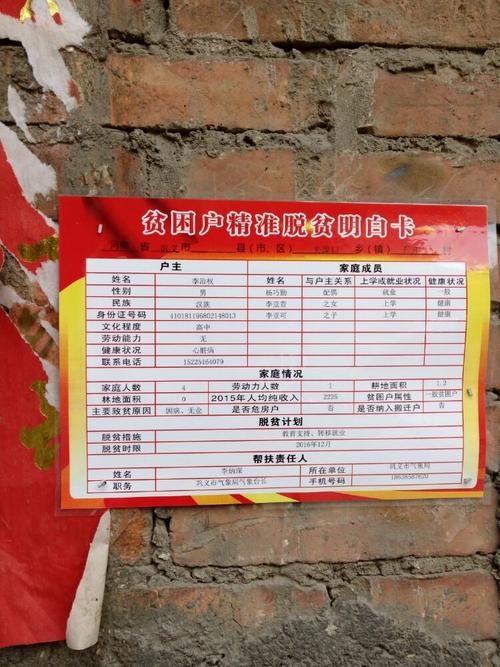 贫困户精准脱贫明白卡
河南 省 巩义市 县(市、区) 乡(镇) 村
户主 家庭成员
姓名 李治权 姓名 与户主关系 上学或就业状况 健康状况
性别 男 杨巧勤 配偶 就业 一般
民族 汉族 李亚杏 之女 上学 健康
身份证号码 410181196802148013 李亚可 之子 上学 健康
文化程度 高中
劳动能力 无
健康状况 心脏病
联系电话 15225164079
家庭情况
家庭人数 4 劳动力人数 1 耕地面积 1.2
林地面积 0 2015年人均纯收入 2225 贫困户属性 一般贫困户
主要致贫原因 因病、无业 是否危房户 否 是否纳入搬迁户 否
脱贫计划
脱贫措施 教育支持、转移就业
脱贫时限 2016年12月
帮扶责任人
姓名 李炳琛 所在单位 巩义市气象局
职务 巩义市气象局气象台长 手机号码 18638587620